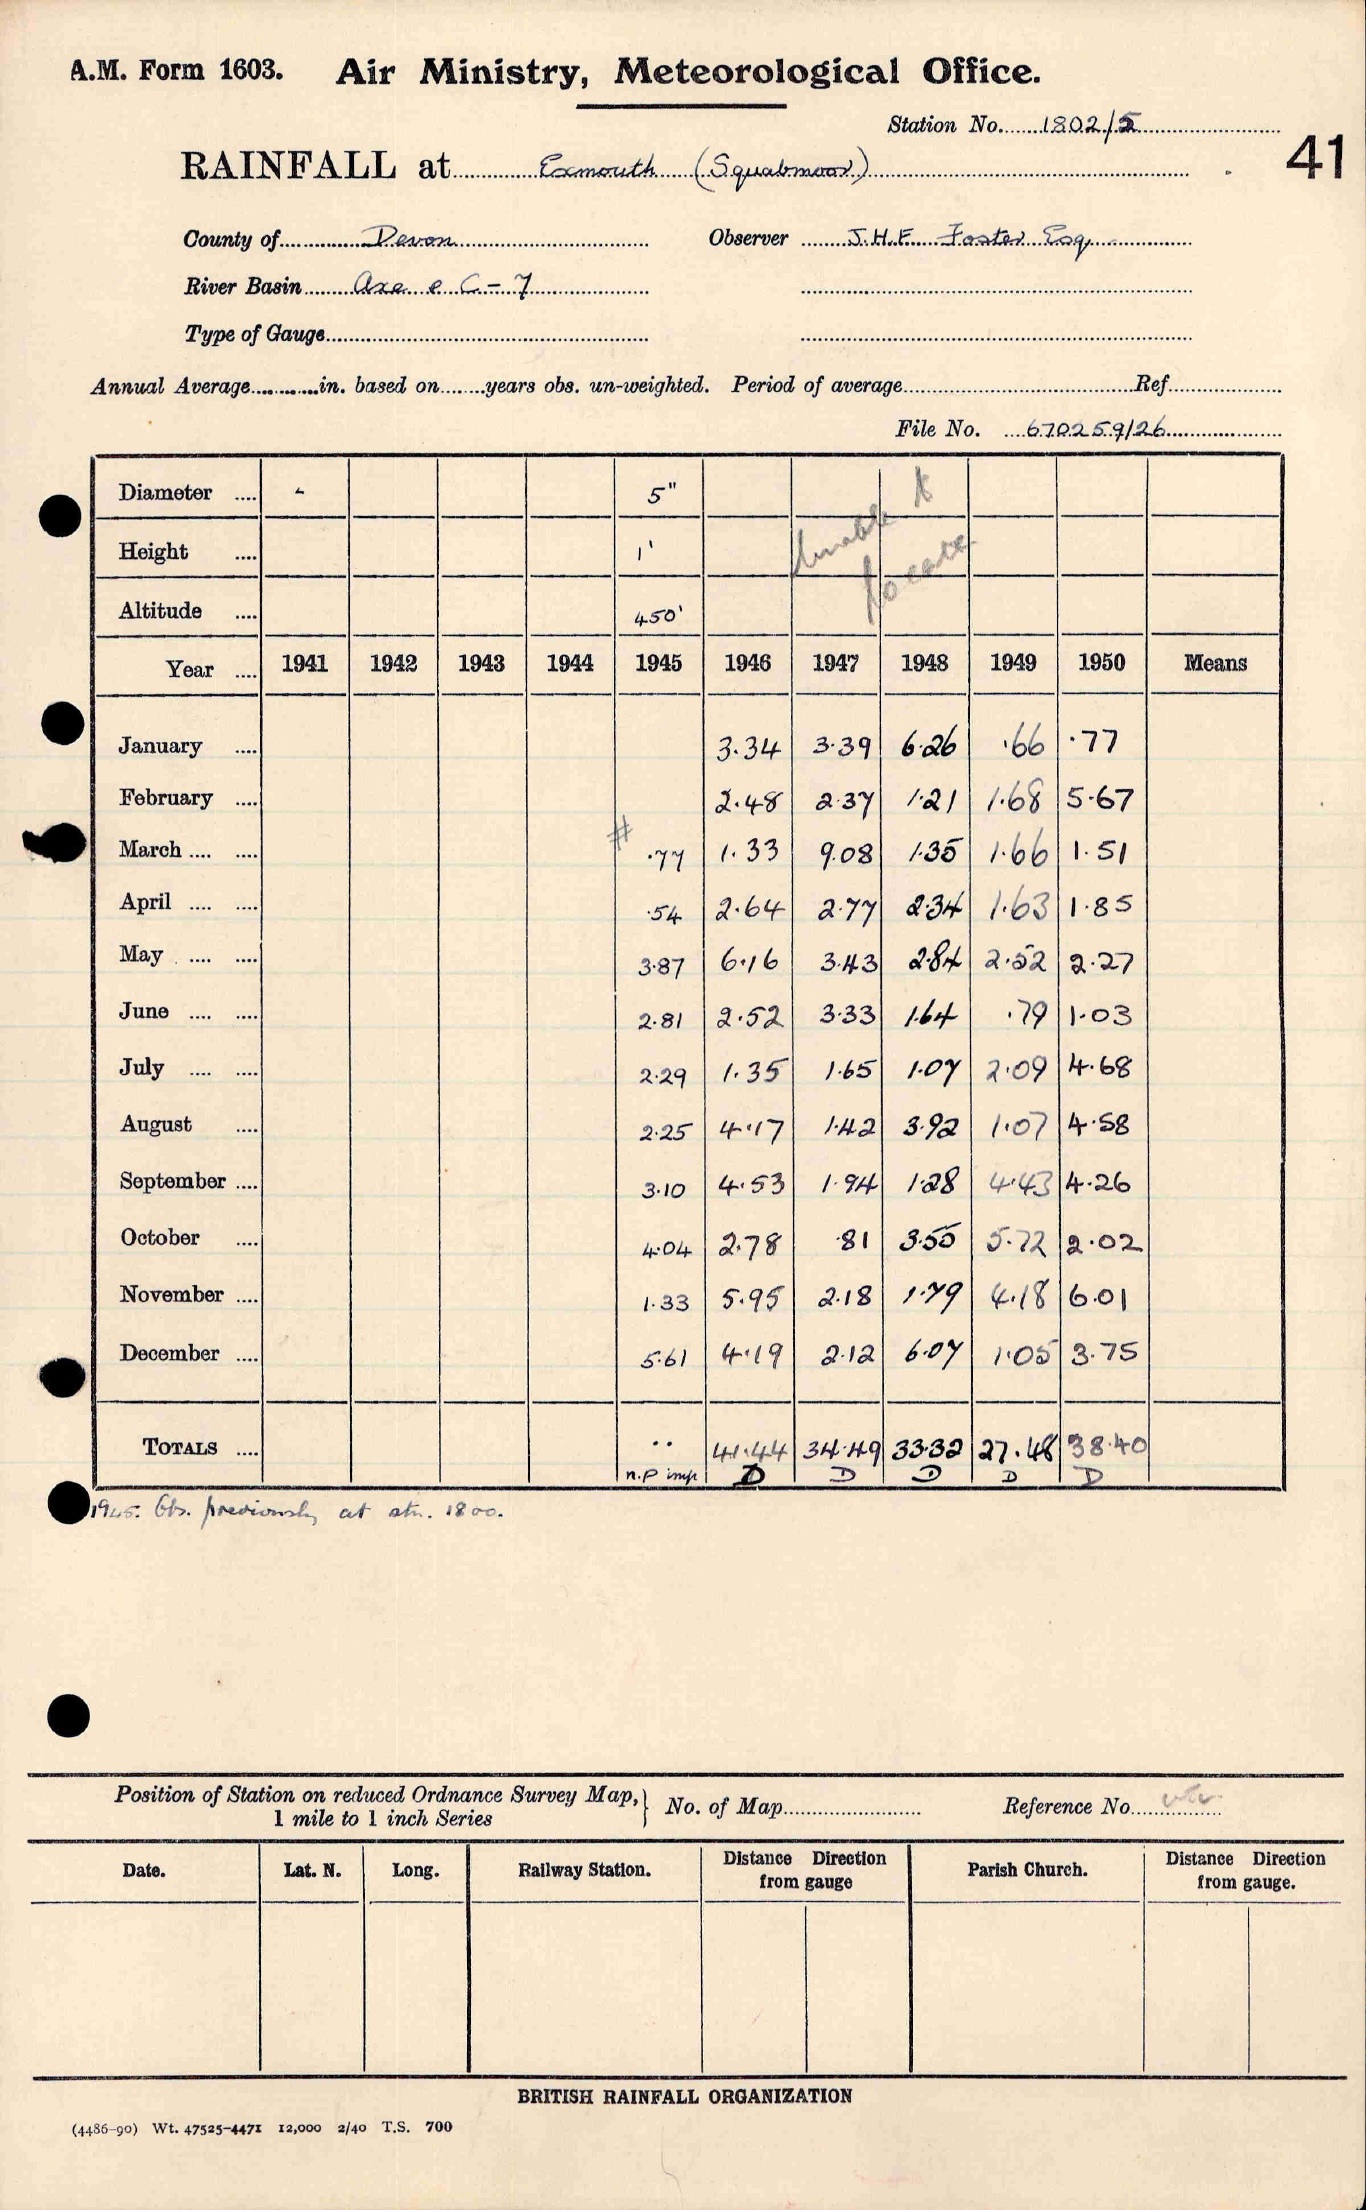 A.M. Form 1603. Air Ministry, Meteorological Office.
Station No. 1802/5
41
RAINFALL at Exmouth (Squabmoor)
County of Devon Observer J.H.F. Foster Esq.
River Basin Axe e C-7
Type of Gauge
Annual Average in. based on years obs. un-weighted. Period of average Ref
File No. 670259/26
Diameter .... - 5"
Unable to
locate
Height .... 1'
Altitude .... 450'
Year .... 1941 1942 1943 1944 1945 1946 1947 1948 1949 1950 Means
January .... 3.34 3.39 6.26 .66 .77
February .... 2.48 2.37 1.21 1.68 5.67
#
March .... .... .77 1.33 9.08 1.35 1.66 1.51
April .... .... .54 2.64 2.77 2.34 1.63 1.85
May .... .... 3.87 6.16 3.43 2.84 2.52 2.27
June .... .... 2.81 2.52 3.33 1.64 .79 1.03
July .... .... 2.29 1.35 1.65 1.07 2.09 4.68
August .... 2.25 4.17 1.42 3.92 1.07 4.58
September .... 3.10 4.53 1.94 1.28 4.43 4.26
October .... 4.04 2.78 .81 3.55 5.72 2.02
November .... 1.33 5.95 2.18 1.79 4.18 6.01
December .... 5.61 4.19 2.12 6.07 1.05 3.75
TOTALS .... .. 41.44 34.49 33.32 27.48 38.40
n.p imp D D D D D
1945. Obs. previously at stn. 1800.
Position of Station on reduced Ordnance Survey Map, } No. of Map Reference No.
1 mile to 1 inch Series
Date. Lat. N. Long. Railway Station. Distance Direction from gauge Parish Church. Distance Direction from gauge.
BRITISH RAINFALL ORGANIZATION
(4486-90) Wt. 47525-4471 12,000 2/40 T.S. 700